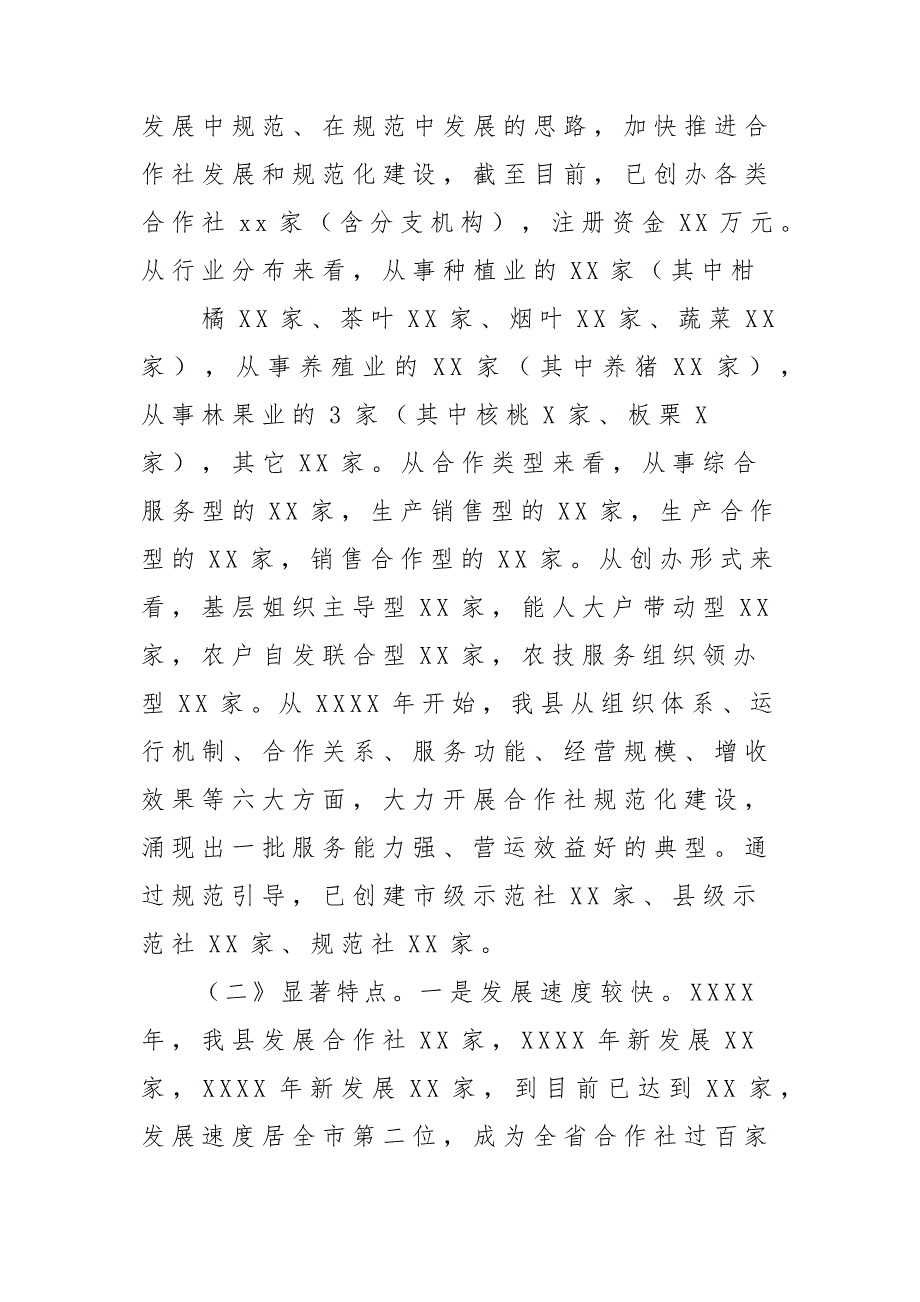 发展中规范、在规范中发展的思路，加快推进合
作社发展和规范化建设，截至目前，已创办各类
合作社 xx 家（含分支机构），注册资金 XX 万元。
从行业分布来看，从事种植业的 XX 家（其中柑
橘 XX 家、茶叶 XX 家、烟叶 XX 家、蔬菜 XX
家），从事养殖业的 XX 家（其中养猪 XX 家），
从事林果业的 3 家（其中核桃 X 家、板栗 X
家），其它 XX 家。从合作类型来看，从事综合
服务型的 XX 家，生产销售型的 XX 家，生产合作
型的 XX 家，销售合作型的 XX 家。从创办形式来
看，基层姐织主导型 XX 家，能人大户带动型 XX
家，农户自发联合型 XX 家，农技服务组织领办
型 XX 家。从 XXXX 年开始，我县从组织体系、运
行机制、合作关系、服务功能、经营规模、增收
效果等六大方面，大力开展合作社规范化建设，
涌现出一批服务能力强、营运效益好的典型。通
过规范引导，已创建市级示范社 XX 家、县级示
范社 XX 家、规范社 XX 家。
（二》显著特点。一是发展速度较快。XXXX
年，我县发展合作社 XX 家，XXXX 年新发展 XX
家，XXXX 年新发展 XX 家，到目前已达到 XX 家，
发展速度居全市第二位，成为全省合作社过百家